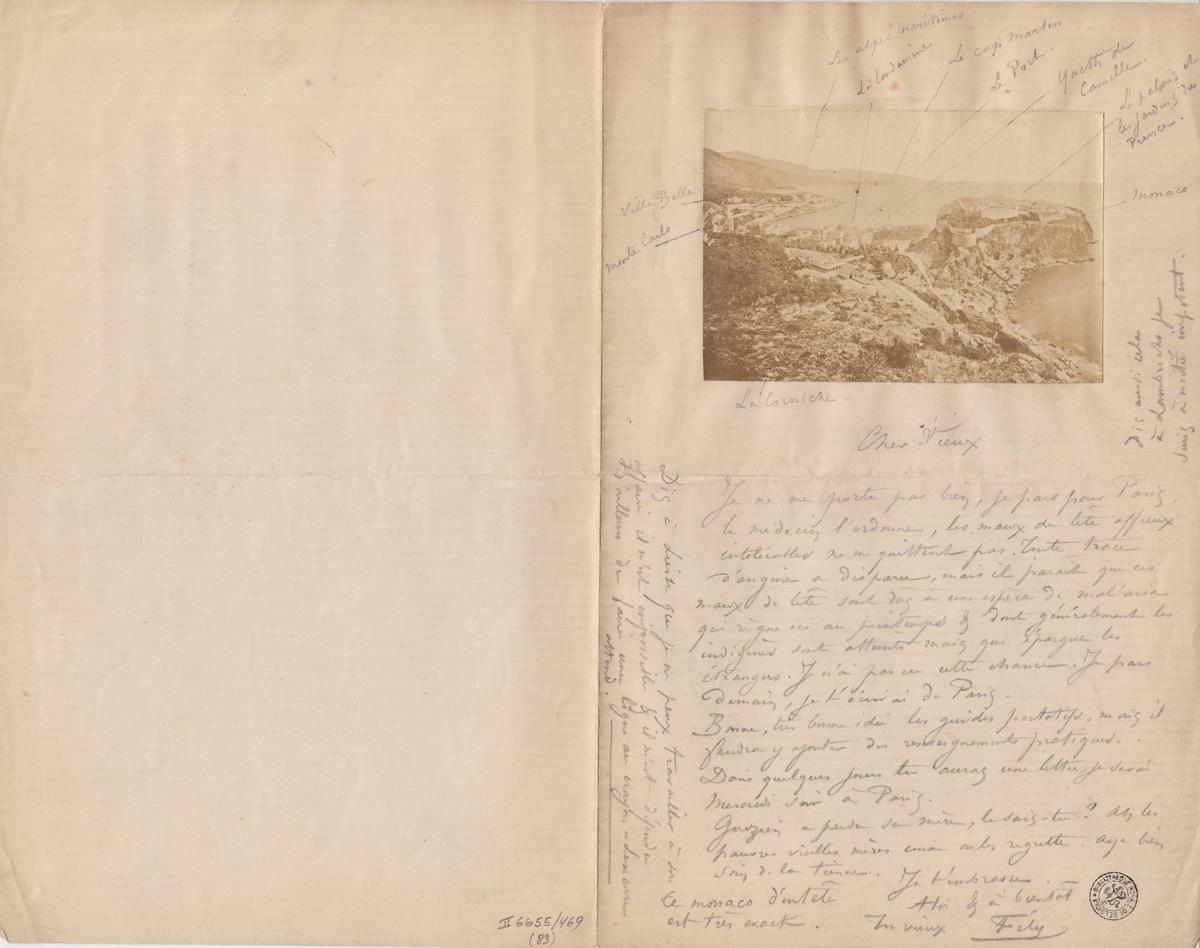 Les alpes maritimes
La Condamine
Le cap Martin
Le Port.
Yacth de
Camille.
Le palais et
les jardins du
Prince.
Monaco
Villa Bella
Monte Carlo
La Corniche.
Dis aussi cela
à Lambrichs je
suis à moitié impotent.
Cher Vieux
Je ne me porte pas bien, je pars pour Paris,
le médecin l'ordonne, les maux de tête affreux
intolérables ne me quittent pas. Toute trace
d'angine a disparue, mais il parait que ces
maux de tête sont dus à une espèce de mal'aria
qui règne ici au printemps & dont généralement les
indigènes sont atteints mais qui épargne les
étrangers. Je n'ai pas eu cette chance. Je pars
Demain, je t'écrirai de Paris.
Bonne, très bonne idée les guides portatifs, mais il
faudra y ajouter des renseignements pratiques.
Dans quelques jours tu auras une lettre, je serai
Mercredi soir à Paris.
a perdu sa mère, le sais-tu? Ah les
pauvres vieilles mères comme on les regrette. Aye bien
soin de la tienne. Je t'embrasse.
à bientôt
Ton vieux Fély
Le monaco d'entête
est très exact.
Dis à que je ne peux travailler à son
il m'est impossible & il m'est défendu
d'ailleurs de faire une ligne au crayon
BIBLIOTHÈQUE ROYALE DE BELGIQUE
II 6655/469
(83)